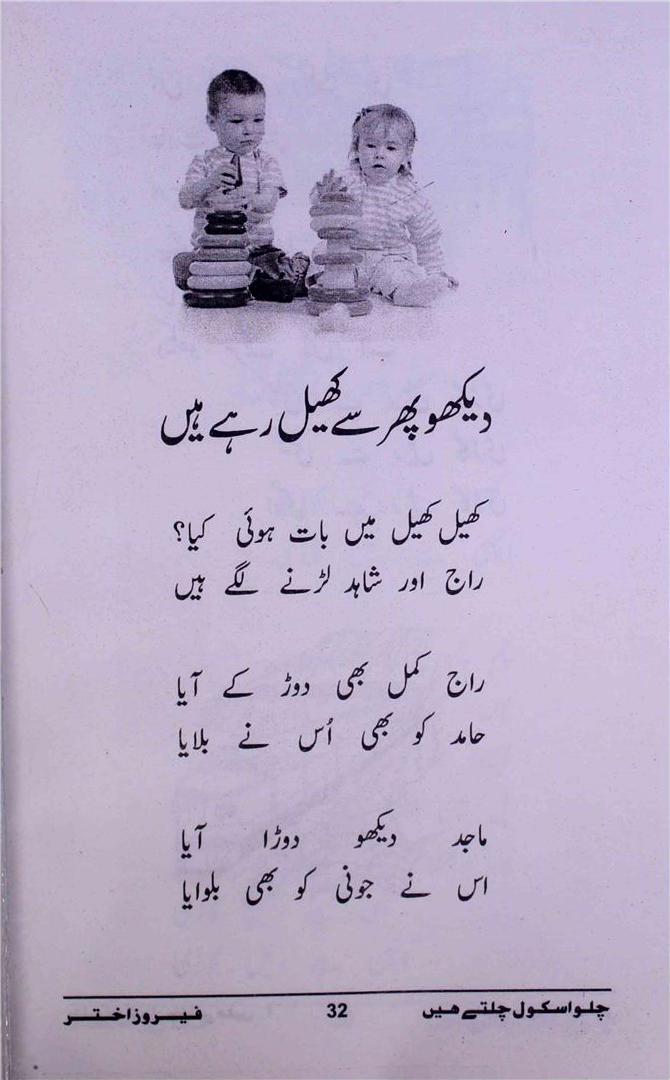 دیکھو پھر سے کھیل رہے ہیں
کھیل کھیل میں بات ہوئی کیا؟
راج اور شاہد لڑنے لگے ہیں
راج کمل بھی دوڑ کے آیا
حامد کو بھی اُس نے بلایا
ماجد دیکھو دوڑا آیا
اس نے جونی کو بھی بلوایا
چلو اسکول چلتے ھیں 32 فیروز اختر